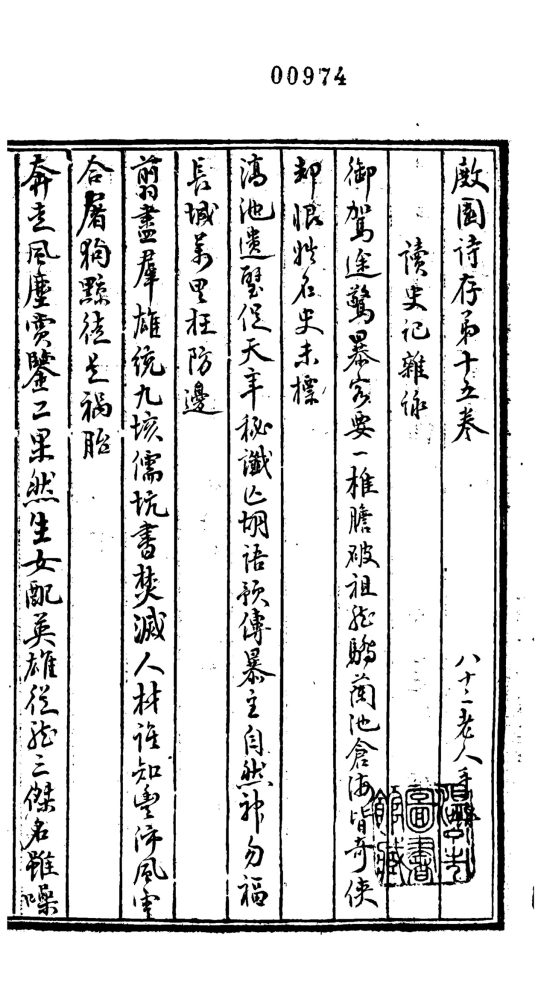 00974
敝園詩存第十五卷
八十二老人手
讀史記雜詠
御駕途驚暴客要一椎膽破祖龍驕蘭池倉海皆奇俠
却恨姓名史未標
滈池遺璧促天年秘讖亡胡語預傳暴主自然神勿福
長城萬里枉防邊
翦盡羣雄統九垓儒坑書焚滅人材誰知豐沛風雲
合屠狗黥徒是禍胎
奔走風塵賣鑒工果然生女配英雄從龍三傑名雖噪